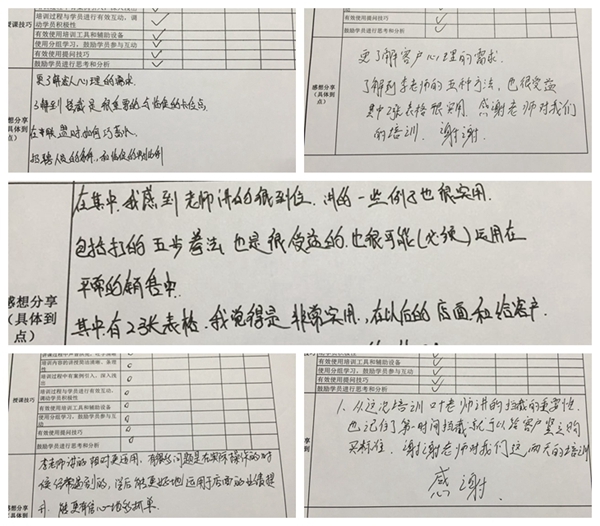 授课技巧
培训过程与学员进行有效互动、调
动学员积极性
有效使用培训工具和辅助设备
使用分组学习、鼓励学员参与互动
有效使用提问技巧
鼓励学员进行思考和分析
感想分享
（具体到
点）
更了解客人心理的需求
了解到拦截是很重要的
有效使用提问技巧
鼓励学员进行思考和分析
感想分享
（具体到
点）
更了解客户心理的需求.
了解到李老师的五种方法，也很受益
其中2张表格很实用. 感谢老师对我们
的培训. 谢谢.
感想分享
（具体到
点）
在集中.我感到老师讲的很到位.讲的一些例子也很实用.
包括打的五步着法.也是很受益的.也很可能(必须)运用在
平常的销售中.
其中有2张表格.我觉得是非常实用.,在以后的店面和给客户.
授课技巧
培训内容的讲授简洁清晰、条理
性
培训过程中有案例引入，深入浅
出
培训过程与学员进行有效互动、
调动学员积极性
有效使用培训工具和辅助设备
使用分组学习、鼓励学员参与互
动
有效使用提问技巧
鼓励学员进行思考和分析
感想分享
（具体到
点）
李老师讲的相对更适用. 有很多问题是在实际操作的时
候经常遇到的，课后能更好地运用于店面的业绩提
升.
有效使用培训工具和辅助设备
使用分组学习、鼓励学员参与互动
有效使用提问技巧
鼓励学员进行思考和分析
1、从这次培训 叶老师讲的拦截的重要性.
也记住了第一时间拦截就可以给客户竖立购
买标准. 谢谢老师对我们这两天的培训
感谢.